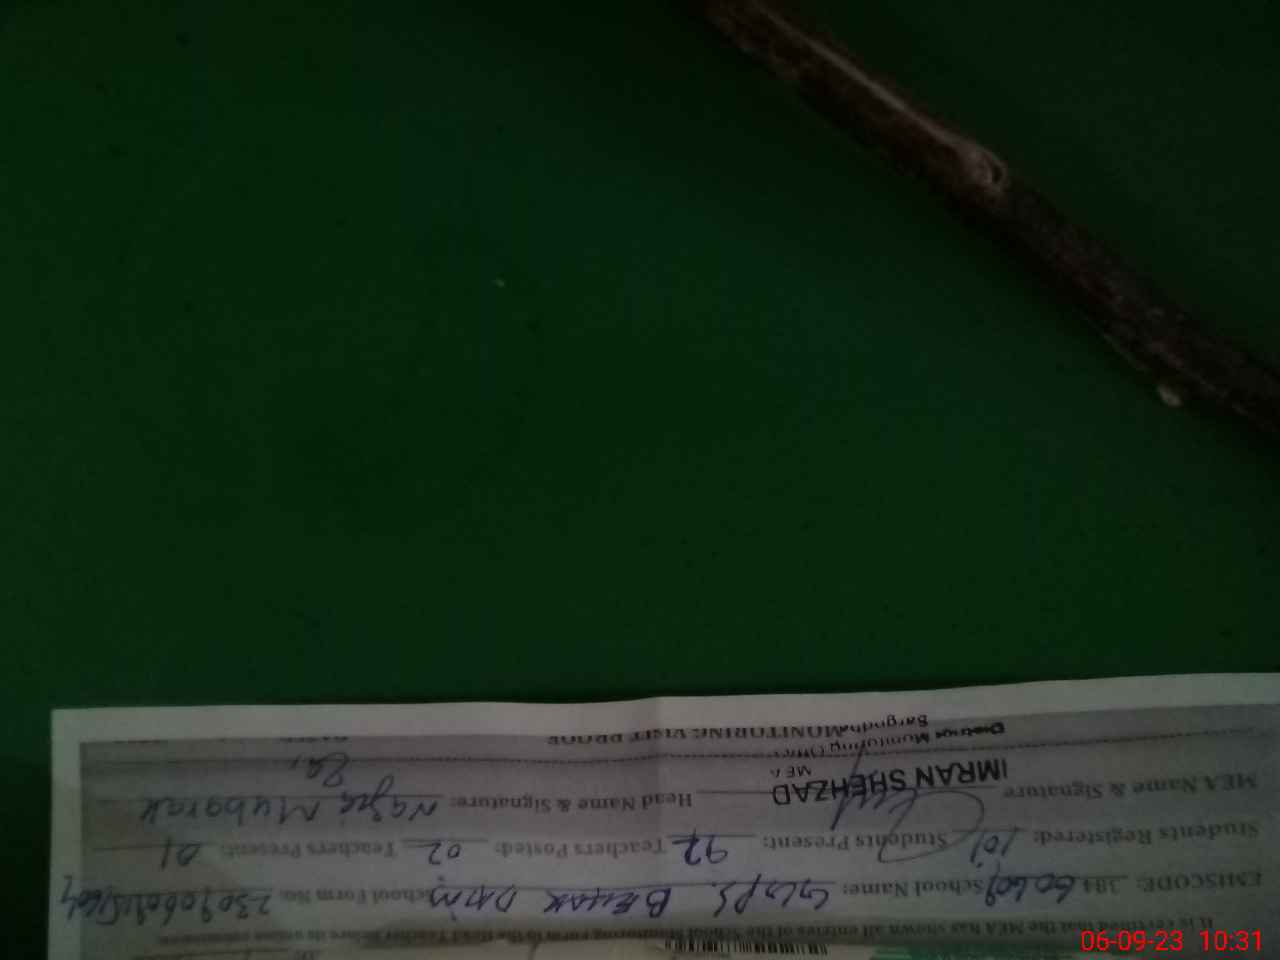 It is certified that the MEA has shown all entries of the School Monitoring Form to the Head Teacher before its online submission.
EMISCODE: 384 60609 School Name: GGPS. BEHAK DAIM School Form No.
Students Registered: 101 Students Present: 92 Teachers Posted: 02 Teachers Present: 01
MEA Name & Signature IMRAN SHEHZAD Head Name & Signature: Nazia Mubarak
MEA
District Monitoring Office
Sargodha MONITORING VISIT PROOF
06-09-23 10:31